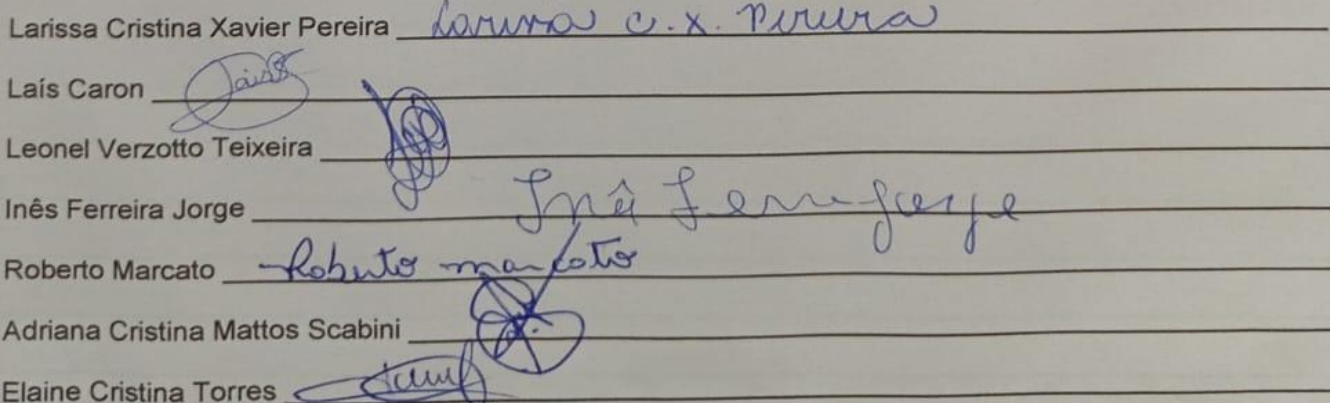 Larissa Cristina Xavier Pereira Larissa C. X. Pereira
Laís Caron Laís
Leonel Verzotto Teixeira
Inês Ferreira Jorge Inê
Roberto Marcato Roberto marcato
Adriana Cristina Mattos Scabini
Elaine Cristina Torres